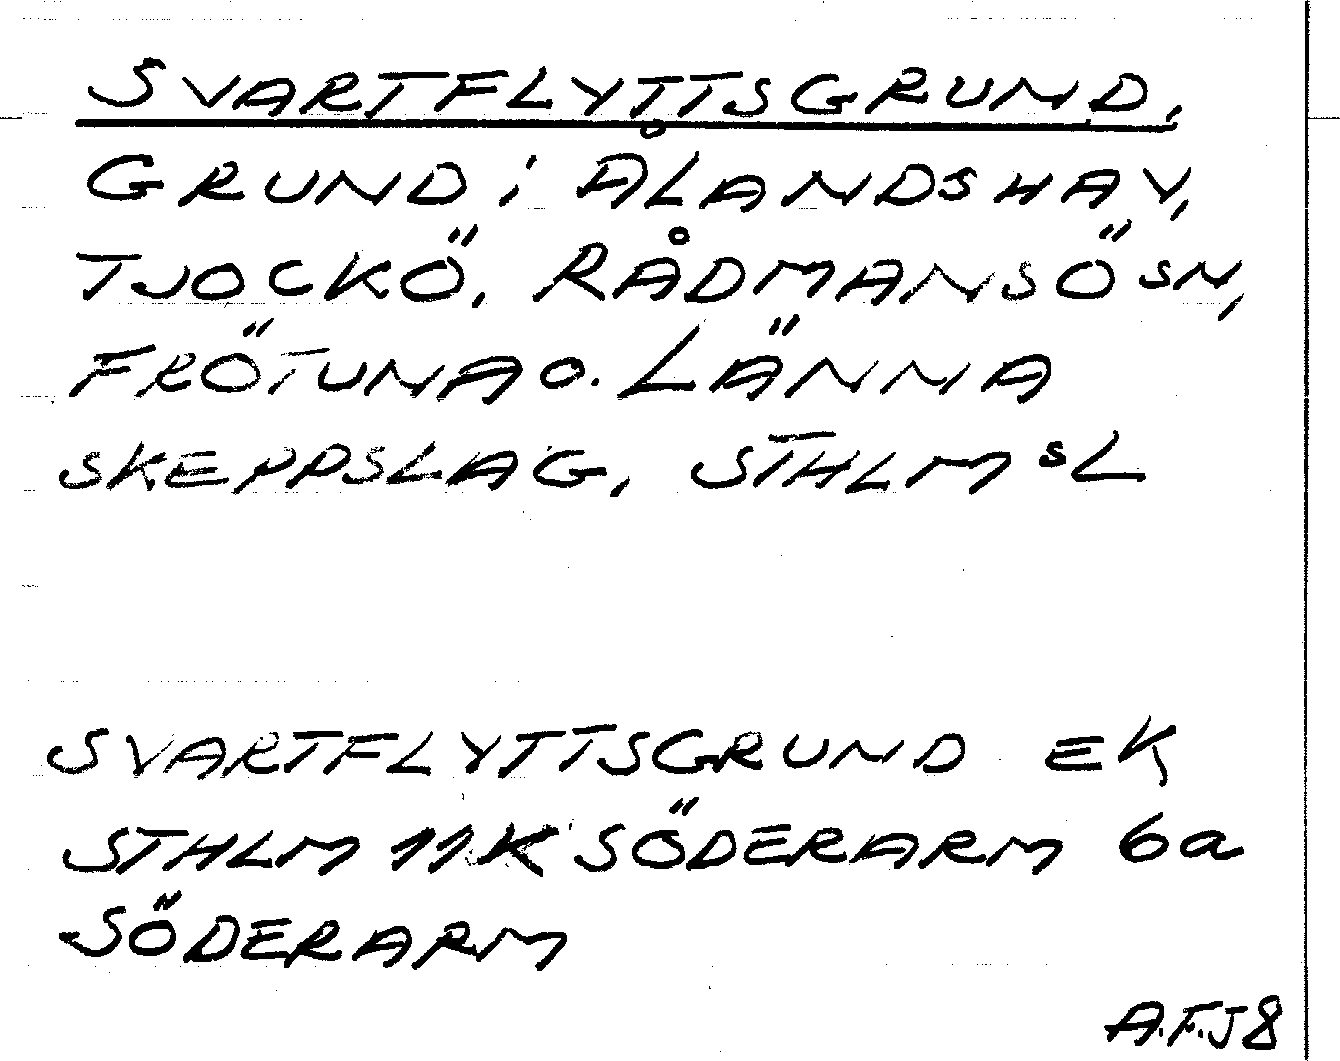 SVARTFLYTTSGRUND,
GRUND i ÅLANDSHAV,
TJOCKÖ, RÅDMANSÖ SN,
FRÖTUNA O. LÄNNA
SKEPPSLAG, STHLM SL
SVARTFLYTTSGRUND EK
STHLM 11K SÖDERARM 6a
SÖDERARM
A.F.J 8